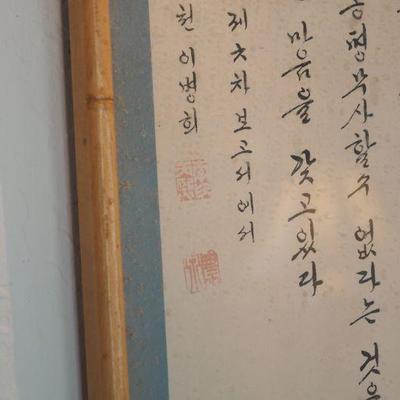 공평무사할수 없다는 것을
마음을 갖고있다
제六차 보고서에서
천 이병희